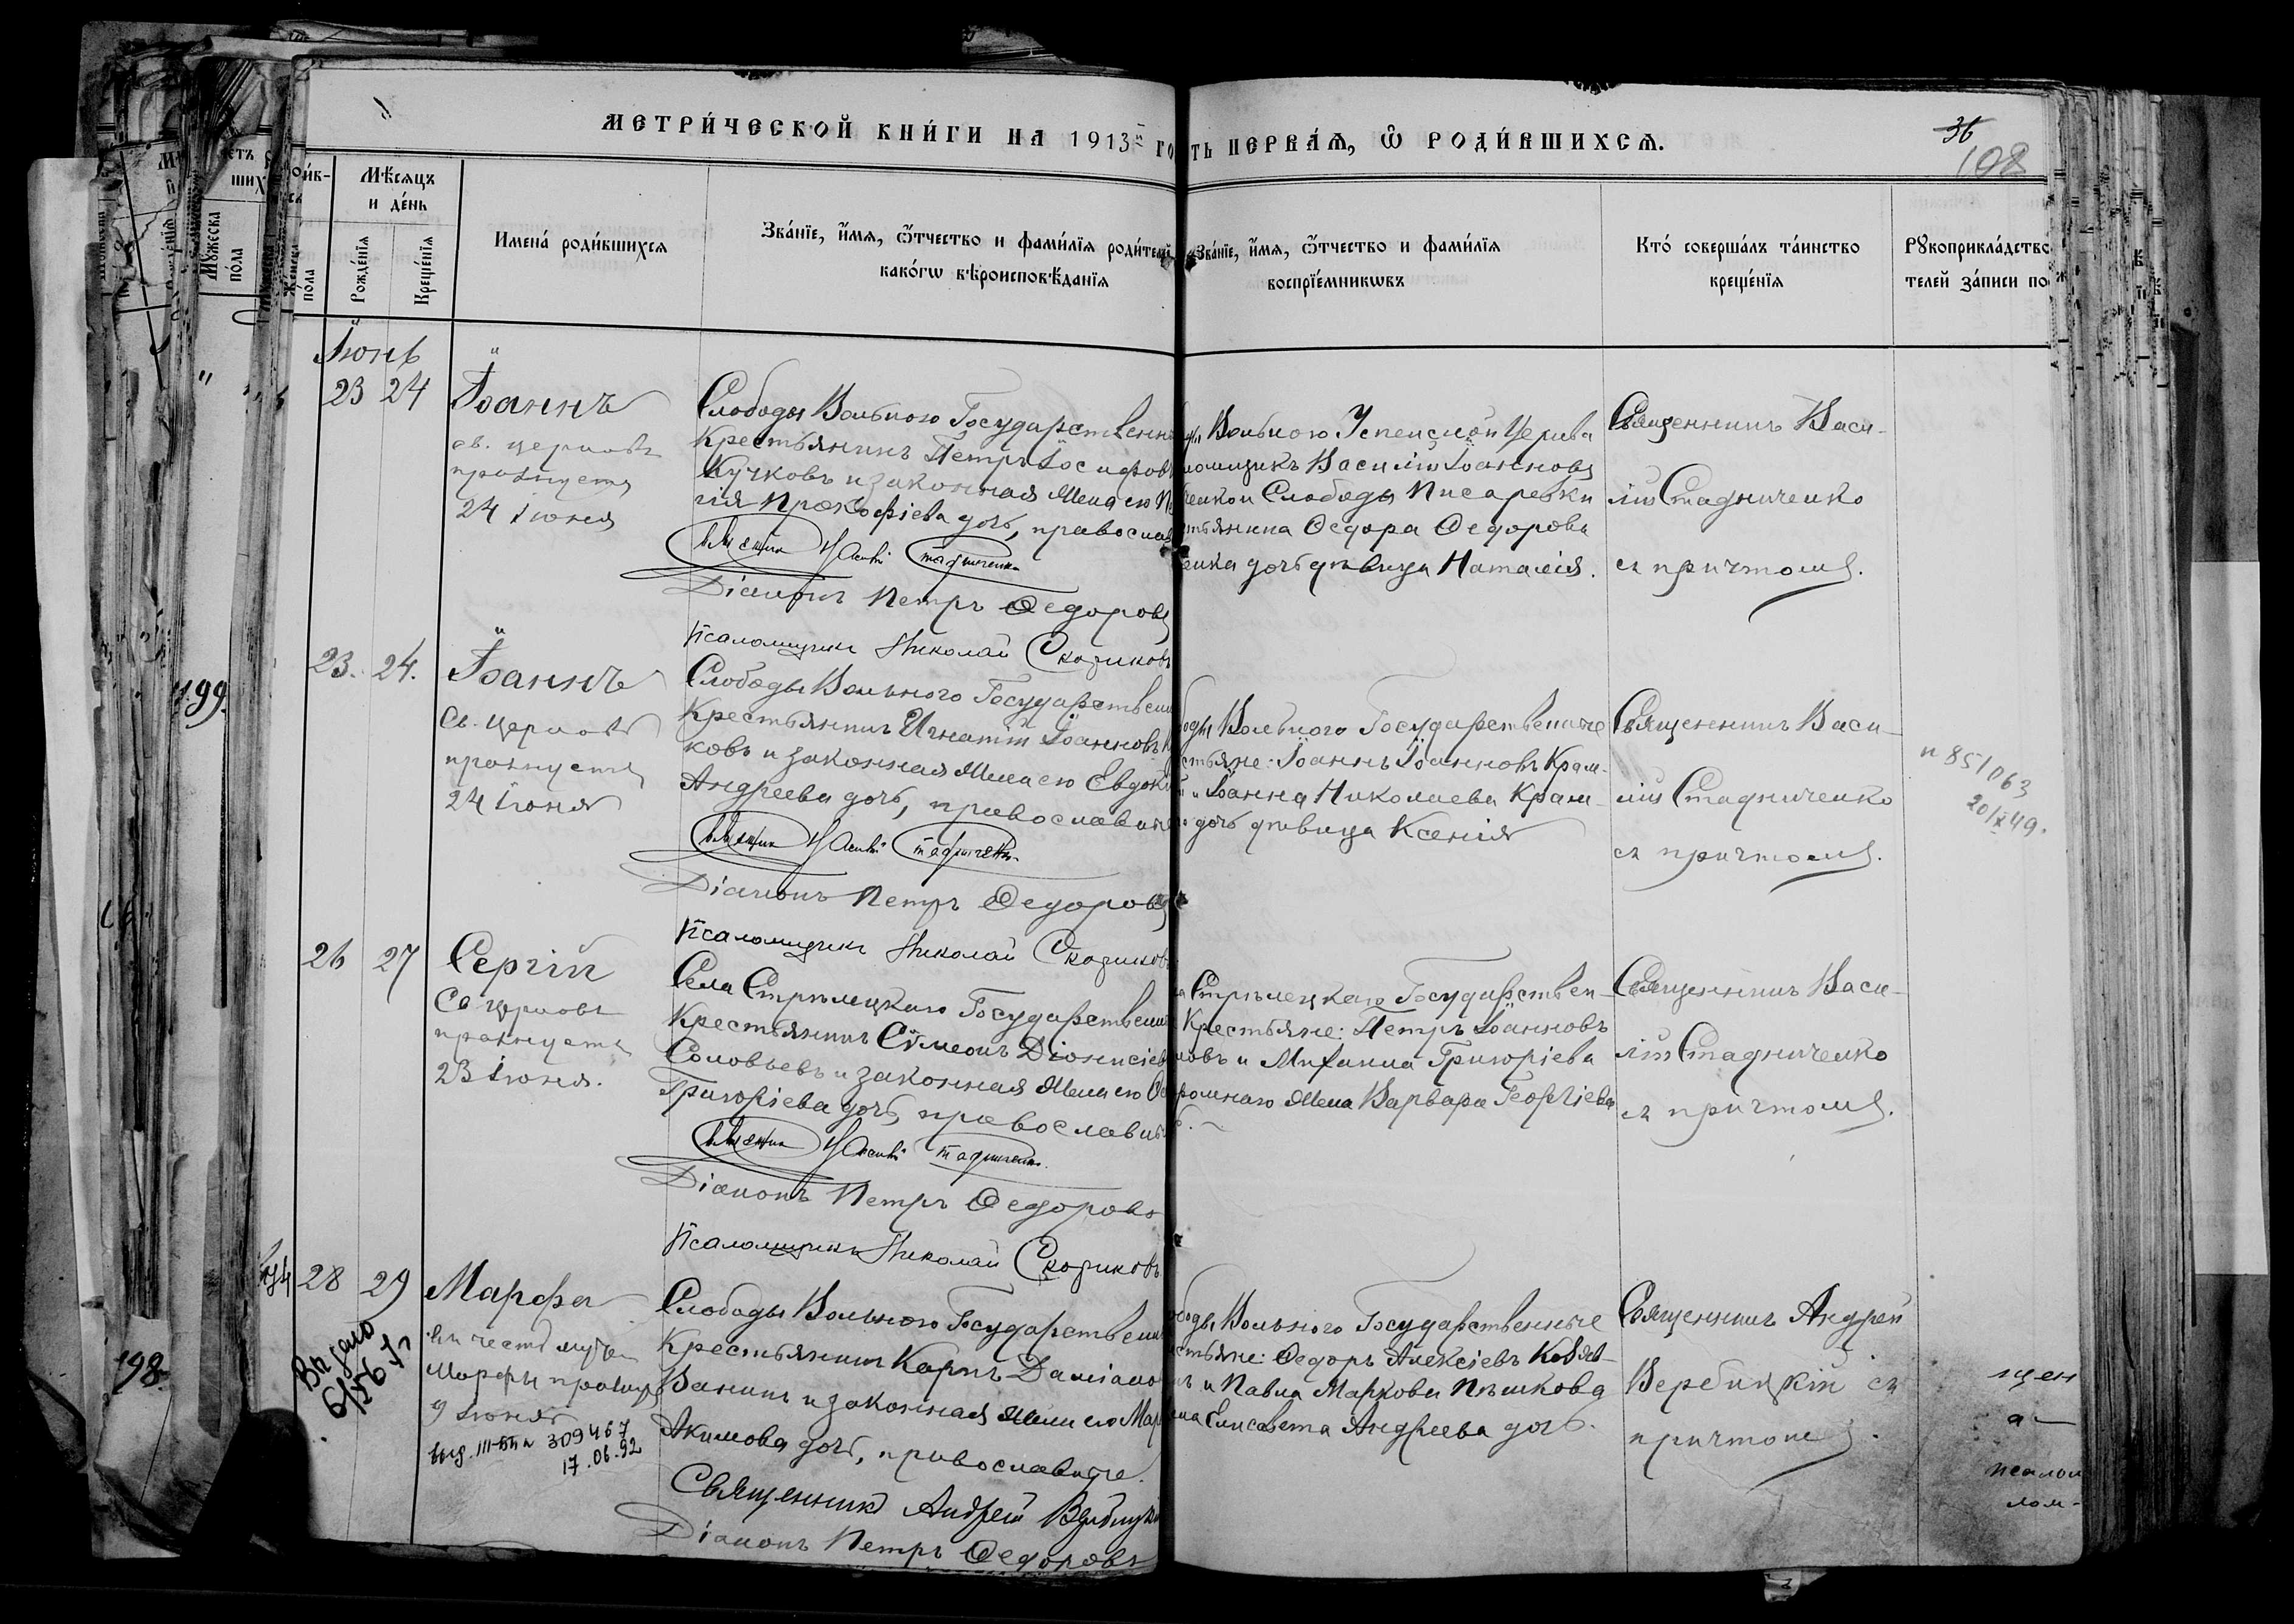 МЕТРИ́ЧЕСКОЙ КНИ́ГИ НА 1913й ГО
ТЬ ПЕРВАЯ, Ѽ РОДИ́ВШИХСѦ.
36
108
Мѣсѧцъ
и де́нь
Рожде́нїѧ
Креще́нїѧ
Имена́ роди́вшихсѧ
Зва́нїе, и҆́мѧ, ѻ҆́тчество и фами́лїѧ роди́телей
како́гѡ вѣроисповѣ́данїѧ
Зва́нїе, и҆́мѧ, ѻ҆́тчество и фами́лїѧ
воспрїе́мникѡвъ
Кто́ соверша́лъ та́инство
креще́нїѧ
Рꙋкоприкла́дство
телей за́писи по
Мꙋжеска
по́ла
Же́нска
по́ла
Іюнь
23 24
Іоаннъ
св. церковь
празнуетъ
24 Іюня
Слободы Вольного Государственн
Крестьянинъ Петръ Іосифовъ
Кучковъ и законная жена его
гія Прокофіева дочь, православ
Діаконъ Петръ Ѳедоровъ
Псаломщикъ Николай Скориковъ
Вольного Успенской Церкви
ломщикъ Василій Іоанновъ
ченко и Слободы Писаревки
стьянина Ѳедора Ѳедорова
енка дочь дѣвица Наталія.
Священникъ Васи-
лій Стадниченко
съ причтомъ.
199.
23. 24.
Іоаннъ
Св. церковь
празнуетъ
24 Іюня
Слободы Вольного Государствен
Крестьянинъ Игнатій Іоанновъ
ковъ и законная жена его Евдок
Андреева дочь, православные
Діаконъ Петръ Ѳедоровъ
Псаломщикъ Николай Скориковъ
оды Вольного Государственные
стьяне: Іоаннъ Іоанновъ Крам-
и Іоанна Николаева Крам-
дочь дѣвица Ксенія
Священникъ Васи-
лій Стадниченко
съ причтомъ.
н 851063
20/X 49.
26 27
Сергій
Св церковь
празнуетъ
23 Іюня.
Села Стрѣлецкаго Государствен
Крестьянинъ Сѵмеонъ Діонисіев
Соловьевъ и законная жена его
Григоріева дочь, православны
Діаконъ Петръ Ѳедоровъ
Псаломщикъ Николай Скориковъ
Стрѣлецкаго Государствен-
Крестьяне: Петръ Іоанновъ
новъ и Михаила Григоріева
жена Варвара Георгіева
Священникъ Васи-
лій Стадниченко
съ причтомъ.
28 29
Марфа
въ честь муч.
Марфы празнуе
9 Іюня
309467
17.06.92
Выдано
198.
Слободы Вольного Государственн
Крестьянинъ Карпъ Даміано
Ванинъ и законная жена его Мар
Акимова дочь, православные.
Священникъ Андрей Вербицкій
Діаконъ Петръ Ѳедоровъ
ободы Вольного Государственные
стьяне: Ѳедоръ Алексіевъ Ковял-
и Павла Маркова Пѣшкова
Елисавета Андреева дочь.
Священникъ Андрей
Вербицкій съ
причтомъ.
щен
а-
псалом
лом-